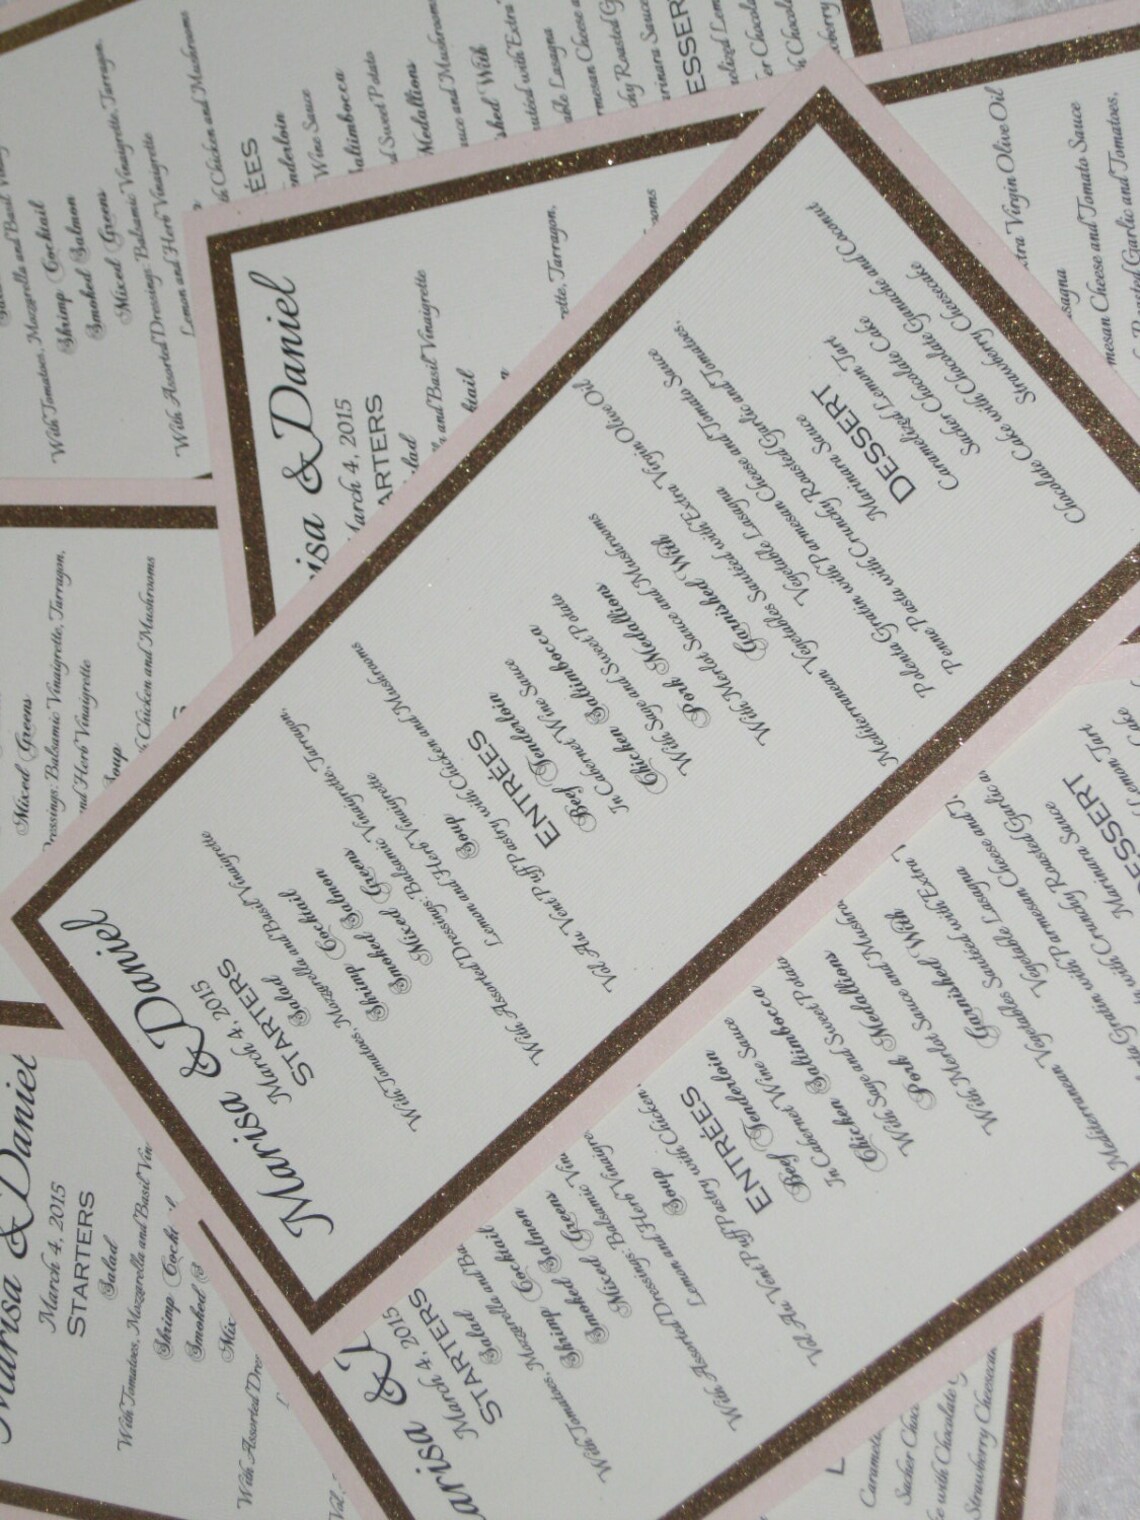 Marisa & Daniel
March 4, 2015
STARTERS
Salad
With Tomatoes, Mozzarella and Basil Vinaigrette
Shrimp Cocktail
Smoked Salmon
Mixed Greens
With Assorted Dressings: Balsamic Vinaigrette, Tarragon,
Lemon and Herb Vinaigrette
Soup
Val Au Vent Puff Pastry with Chicken and Mushrooms
ENTRÉES
Beef Tenderloin
In Cabernet Wine Sauce
Chicken Saltimbocca
With Sage and Sweet Potato
Pork Medallions
With Merlot Sauce and Mushrooms
Garnished With
Mediterranean Vegetables Sautéed with Extra Virgin Olive Oil
Vegetable Lasagna
Polenta Gratin with Parmesan Cheese and Tomato Sauce
Penne Pasta with Crunchy Roasted Garlic and Tomatoes,
Marinara Sauce
DESSERT
Caramelized Lemon Tart
Sacher Chocolate Cake
Chocolate Cake with Chocolate Ganache and Coconut
Strawberry Cheesecake